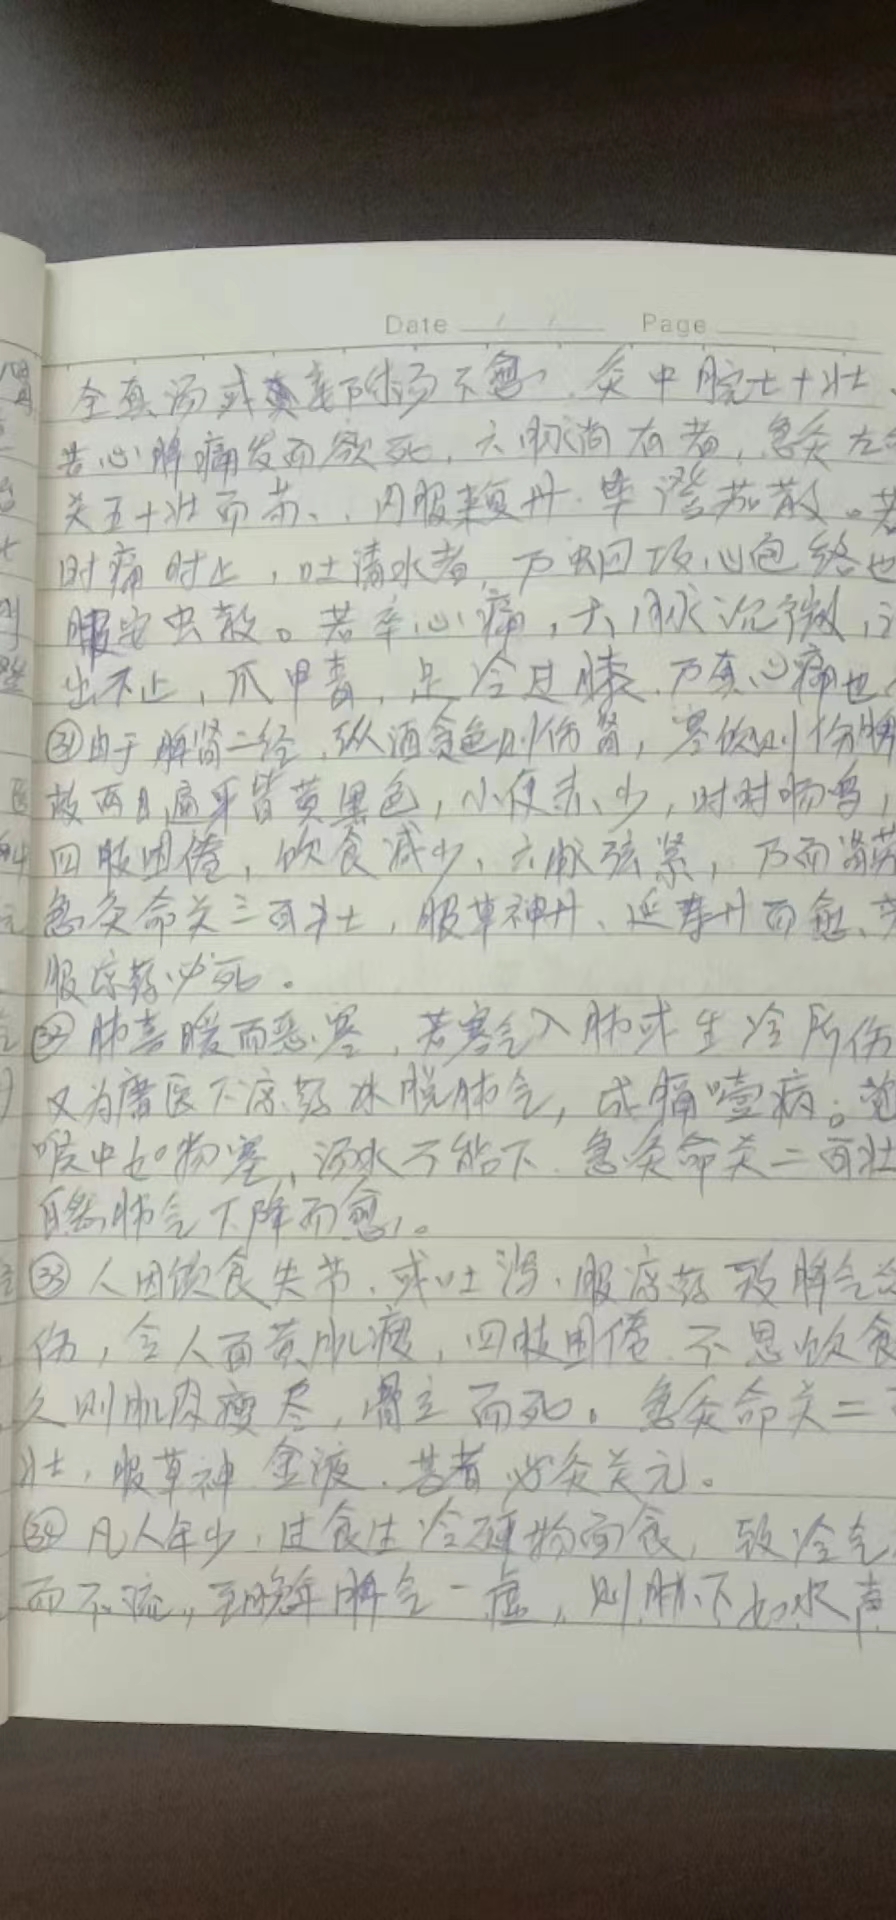 Date / / Page
全真汤或姜附汤不愈，灸中脘七十壮、
若心脾痛发而欲死，六脉尚有者，急灸左命
关五十壮而苏、内服来复丹、荜澄茄散。若
时痛时止，吐清水者，乃蛔攻心包络也
服安虫散。若卒心痛，六脉沉微，汗
出不止，爪甲青，足冷过膝，乃真心痛也
㉛由于脾肾二经，纵酒贪色则伤肾，寒饮则伤脾
故两目遍身皆黄黑色，小便赤少，时时肠鸣，
四肢困倦，饮食减少、六脉弦紧，乃而
急灸命关三百壮，服草神丹、延寿丹而愈、若
服凉药必死。
㉜肺喜暖而恶寒，若寒气入肺或生冷所伤
又为庸医下凉药冰脱肺气，成膈噎病。觉
喉中如物塞，汤水不能下，急灸命关二百壮
自然肺气下降而愈。
㉝人因饮食失节、或吐泻、服凉药致脾气受
伤，令人面黄肌瘦，四肢困倦，不思饮食
久则肌肉瘦尽，骨立而死。急灸命关二
壮，服草神、金液、甚者必灸关元。
㉞凡人年少，过食生冷硬物面食，致冷气
而不流，至晚年脾气一虚，则胁下如水声